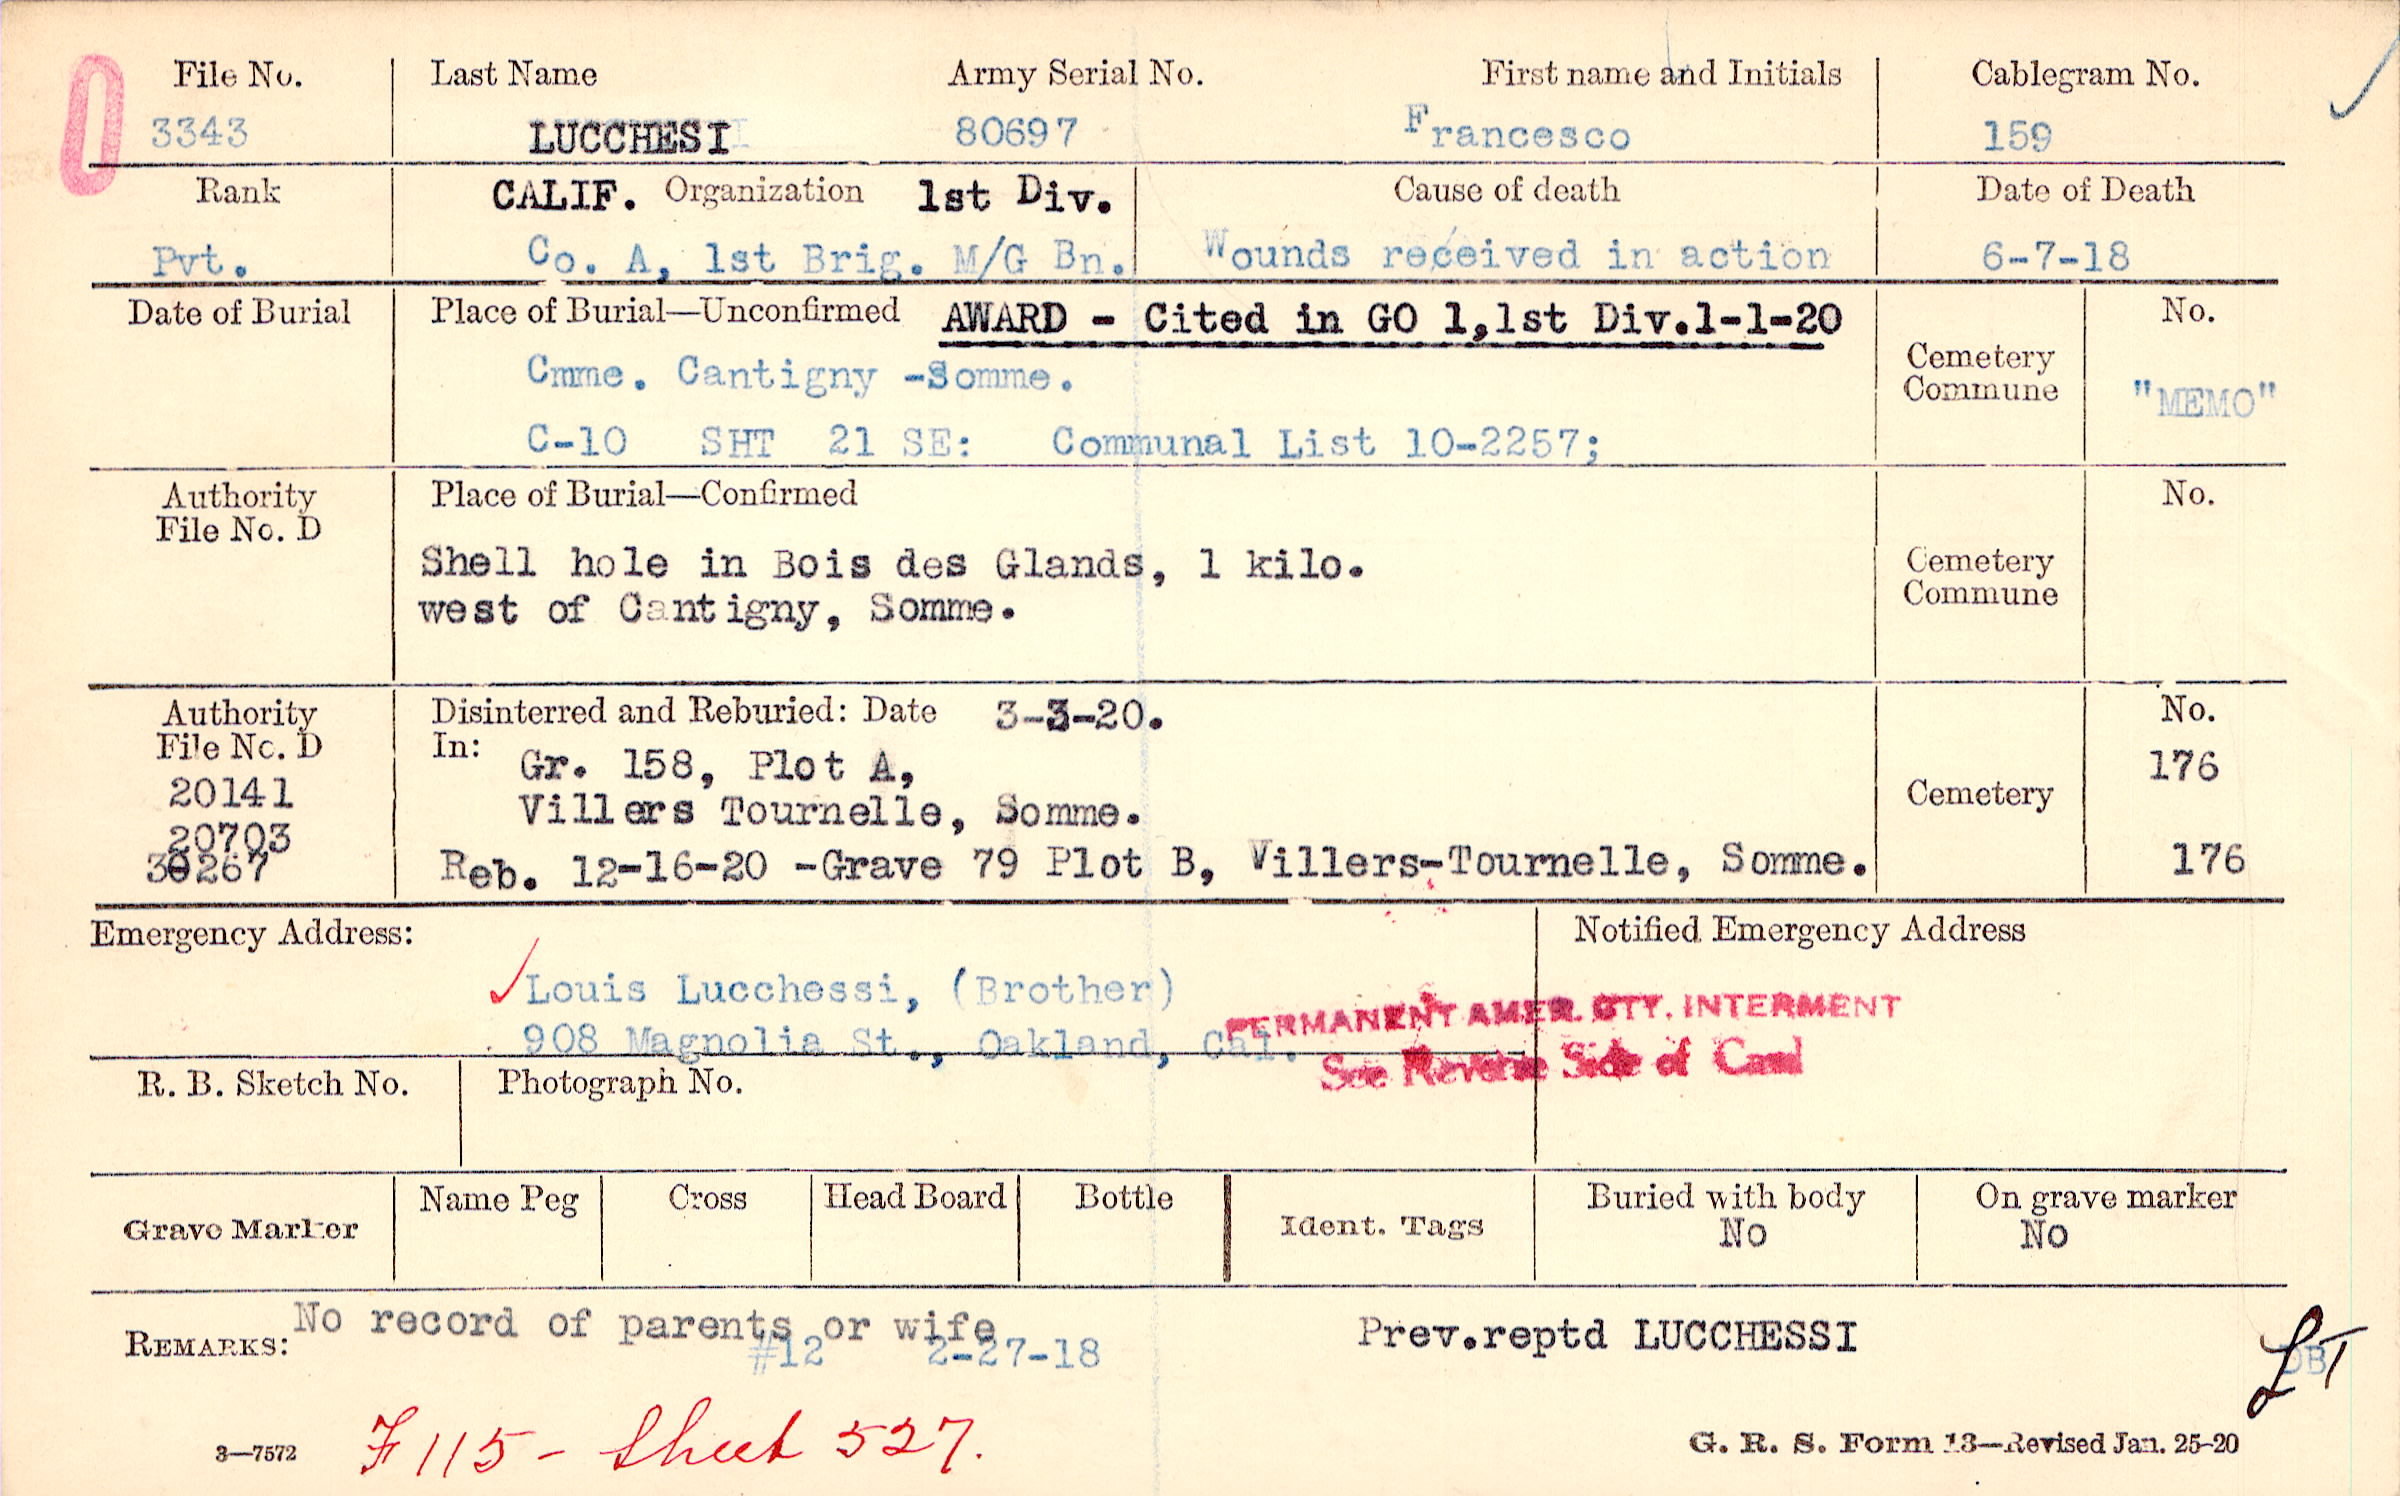 File No. Last Name Army Serial No. First name and Initials Cablegram No.
3343 LUCCHESI 80697 Francesco 159
Rank CALIF. Organization 1st Div. Cause of death Date of Death
Pvt. Co. A, 1st Brig. M/G Bn. Wounds received in action 6-7-18
Date of Burial Place of Burial—Unconfirmed AWARD - Cited in GO 1,1st Div.1-1-20 No.
Cmme. Cantigny -Somme. Cemetery
Commune "MEMO"
C-10 SHT 21 SE: Communal List 10-2257;
Authority Place of Burial—Confirmed No.
File No. D
Shell hole in Bois des Glands, 1 kilo. Cemetery
west of Cantigny, Somme. Commune
Authority Disinterred and Reburied: Date 3-3-20. No.
File No. D In: Gr. 158, Plot A, 176
20141 Villers Tournelle, Somme. Cemetery
20703
30267 Reb. 12-16-20 -Grave 79 Plot B, Villers-Tournelle, Somme. 176
Emergency Address: Notified Emergency Address
Louis Lucchessi, (Brother)
908 Magnolia St., Oakland, Cal.
PERMANENT AMER. CTY. INTERMENT
See Reverse Side of Card
R. B. Sketch No. Photograph No.
Grave Marker Name Peg Cross Head Board Bottle Ident. Tags Buried with body On grave marker
No No
REMARKS: No record of parents or wife Prev.reptd LUCCHESSI
#12 2-27-18
LT
DB
F 115 - Sheet 527.
3—7572 G. R. S. Form 13—Revised Jan. 25-20